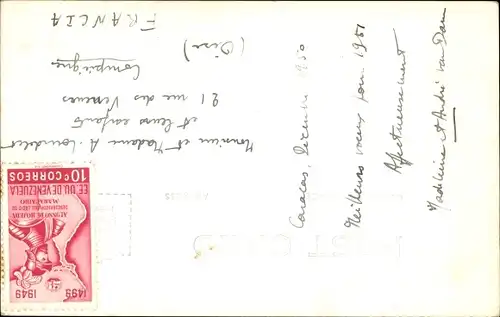 Caracas, Décembre 1950
Meilleurs voeux pour 1951
Affectueusement
Madeleine et André van Dam
Monsieur et Madame A.
et leurs enfants
21 rue des Veneurs
Compiègne
(Oise)
FRANCIA
1499 1949
ALONSO DE HOJEDA
DESCUBRIMIENTO DEL LAGO DE
MARACAIBO
EE. UU. DE VENEZUELA
10 c CORREOS